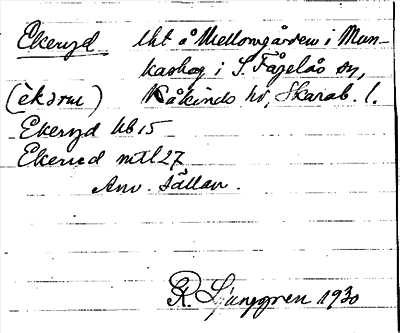 Ekeryd lht å Mellomgården i Mun-
kaskog i S. Fågelås sn,
(èkərul) Kåkinds hd, Skarab. l.
Ekeryd hb 15
Ekerud mtl 27
Anv. sällan.
R. Ljunggren 1930